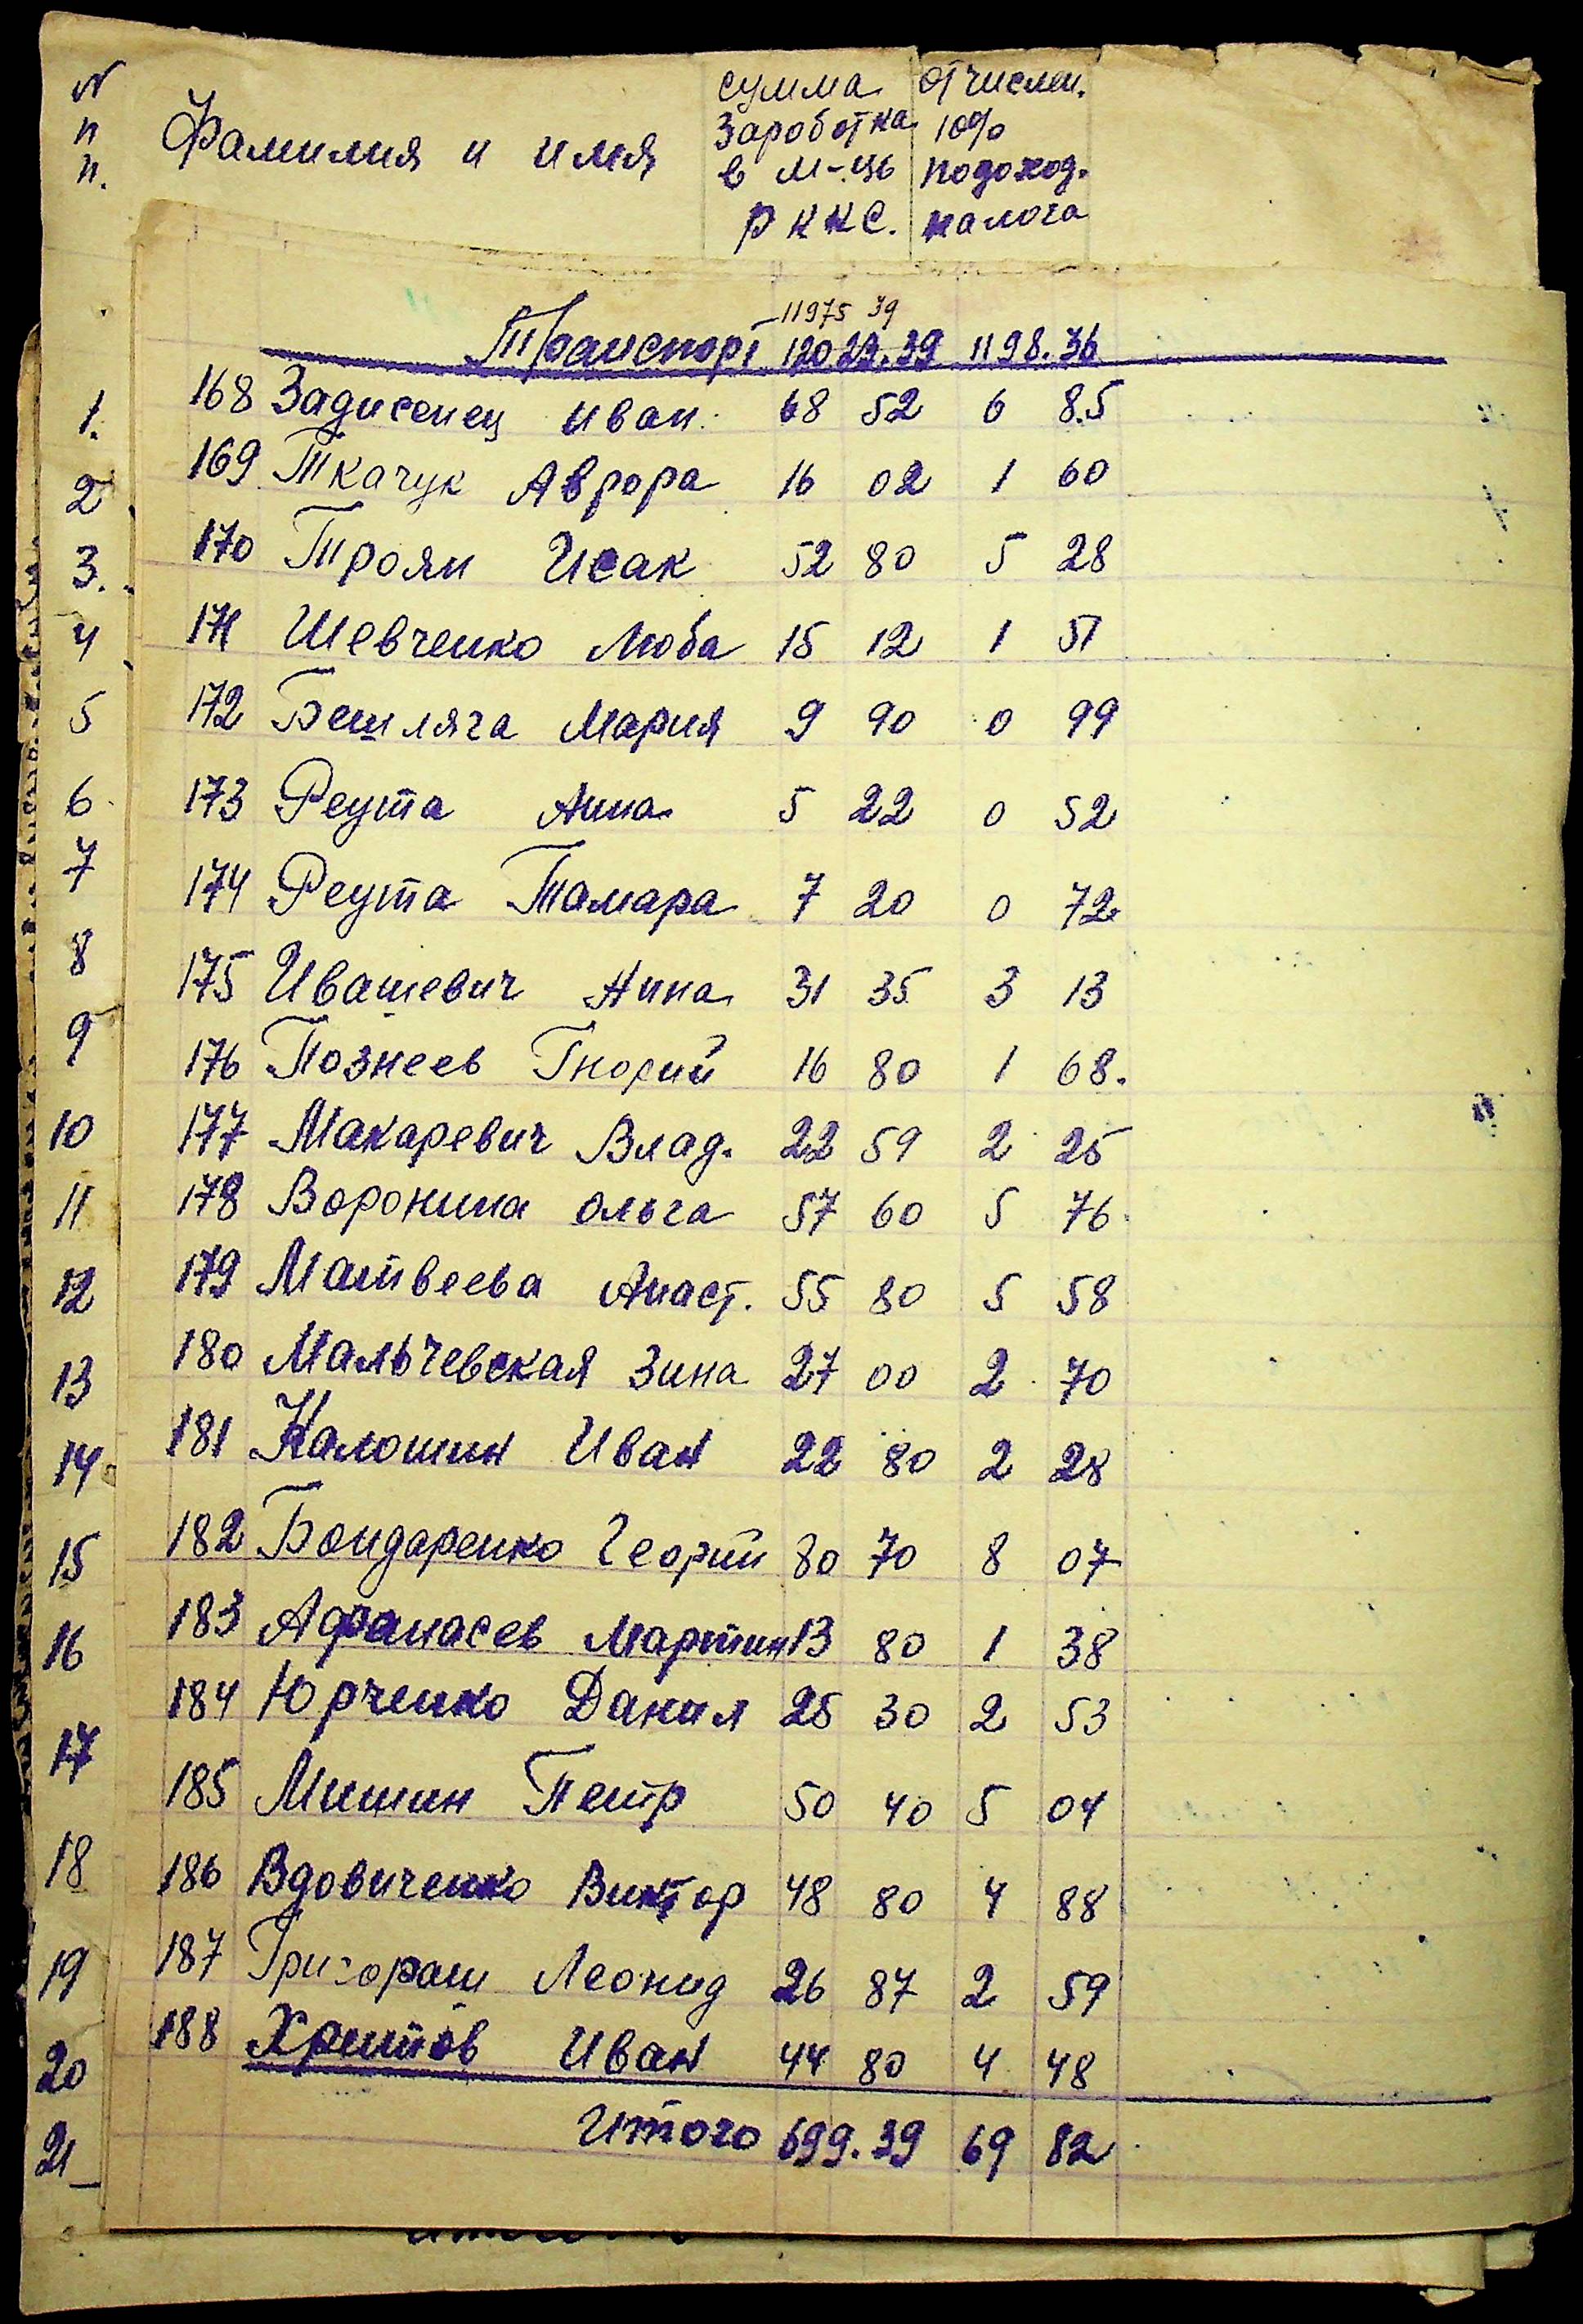 N п п. Фамилия и имя
сумма заработка в м-ць РККС.
отчислен. 10% подоход. налога
11975 39
Транспорт 12029.39 1198.36
1. 168 Задисенец Иван 68 52 6 85
2. 169 Ткачук Аврора 16 02 1 60
3. 170 Троян Исак 52 80 5 28
4 171 Шевченко Люба 15 12 1 51
5 172 Бешляга Мария 9 90 0 99
6 173 Реута Анна 5 22 0 52
7 174 Реута Тамара 7 20 0 72
8 175 Ивашевич Нина 31 35 3 13
9 176 Познеев 16 80 1 68.
10 177 Макаревич Влад. 22 59 2 25
11 178 Воронина Ольга 57 60 5 76
12 179 Матвеева Анаст. 55 80 5 58
13 180 Мальчевская Зина 27 00 2 70
14 181 Калошин Иван 22 80 2 28
15 182 Бондаренко Георгий 80 70 8 07
16 183 Афанасев Мартин 13 80 1 38
17 184 Юрченко Данил 25 30 2 53
18 185 Мишин Петр 50 40 5 04
19 186 Вдовиченко Виктор 48 80 4 88
20 187 Григораш Леонид 26 87 2 59
21 188 Христов Иван 44 80 4 48
Итого 699.39 69 82